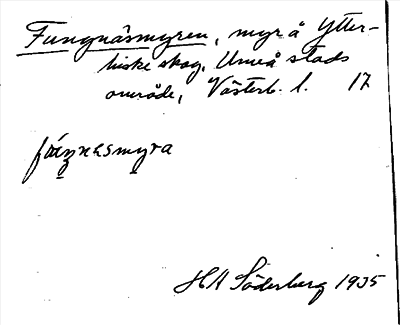 Fungnäsmyren, myr å Ytter-
hiske skog, Umeå stads
område, Västerb. l. 17
HA Söderberg 1935